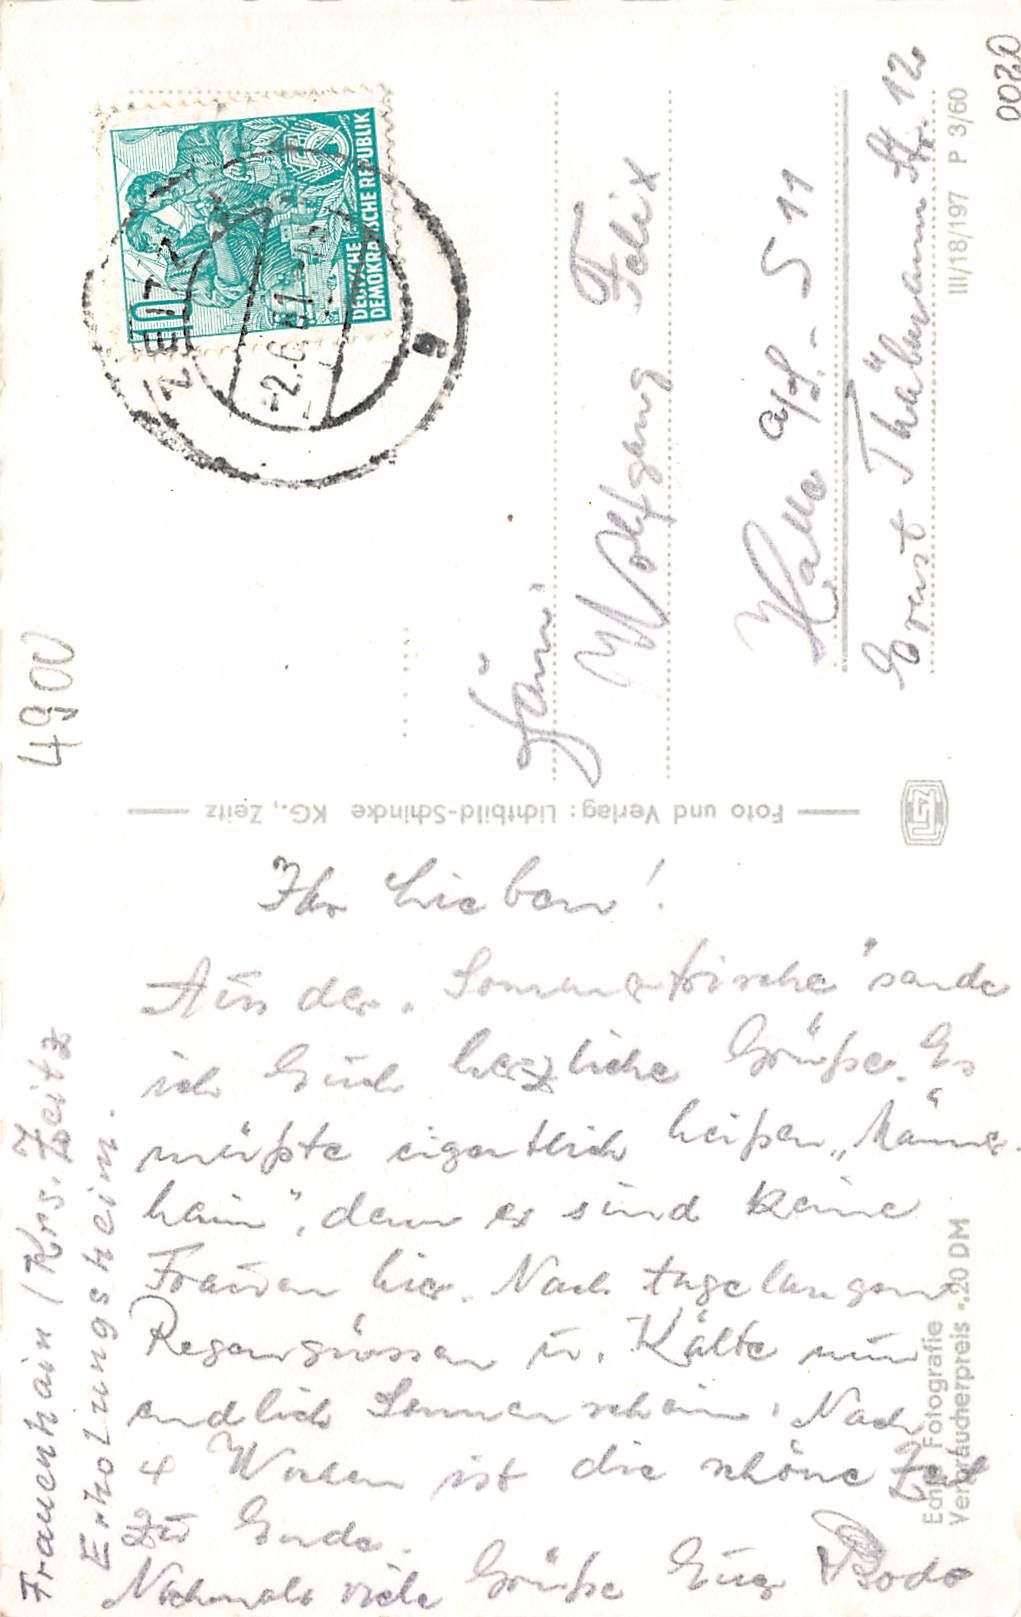 Frauenhain / Krs. Zeitz
Erholungsheim.
Ihr Lieben!
Aus der „Sommerfrische“ sende
ich Euch herzliche Grüße. Es
müßte eigentlich heißen „Männer
hain“, denn es sind keine
Frauen hier. Nach tagelangen
Regengüssen u. Kälte nun
endlich Sonnenschein. Nach
4 Wochen ist die schöne Zeit
zu Ende.
Nochmals viele Grüße Euer Bodo
Foto und Verlag: Lichtbild-Schincke KG., Zeitz
Echte Fotografie
Verbraucherpreis -.20 DM
4900
10
DEUTSCHE
DEMOKRATISCHE REPUBLIK
ZEITZ
-2.6.61
g
Fam.
Wolfgang Felix
Halle a/S. - S 11
Ernst Thälmann Str. 12
III/18/197 P 3/60
0020